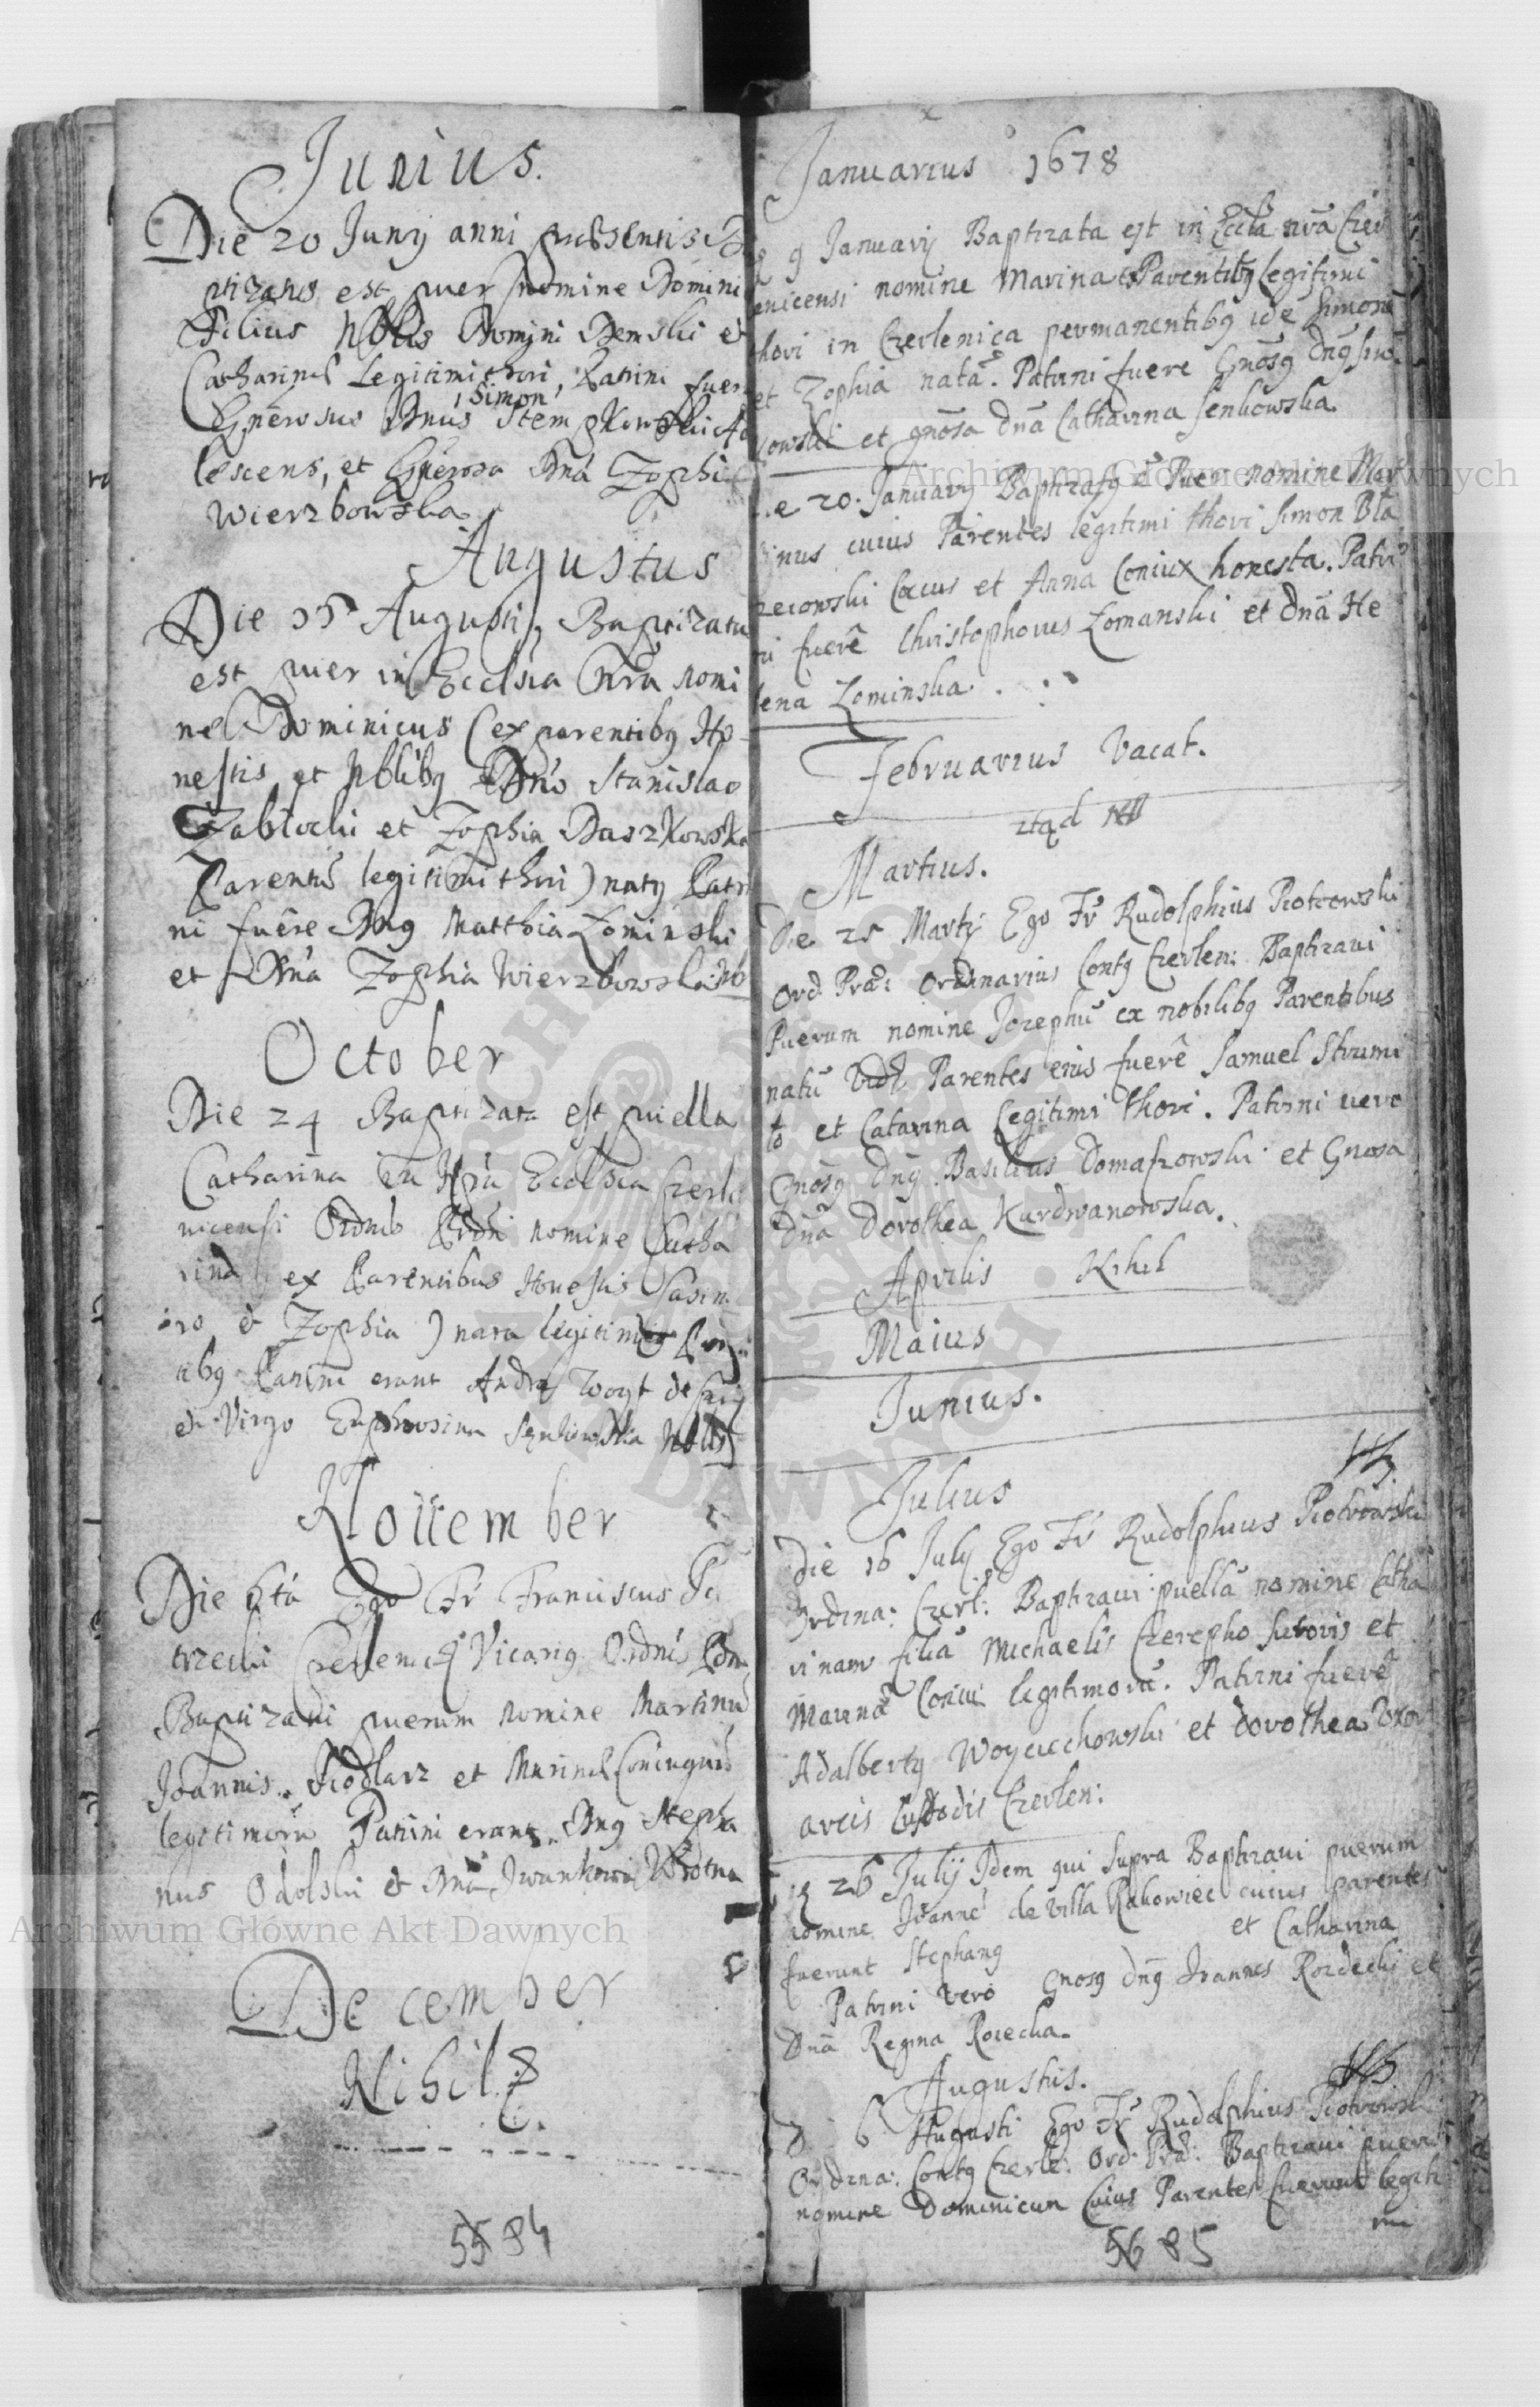 Junius.
Die 20 Junij anni præsentis
ptizatus est puer nomine Domini
Filius Nblis Domini Demski et
Catharinæ Legitimi thori, Patrini fuer
Simon
Gnerosus Dnus Stempkowski Ado
lescens, et Gnerosa Dna Zophia
Wierzbowska
Augustus
Die 15 Augusti, Baptizatu
est puer in Ecclsia Nra nomi
ne Dominicus (ex parentibg Ho-
nestis et Nblibg Dno Stanislao
Zablocki et Zophia Daszkowska
Parentu legitimi thori) natg Patri
ni fuere Dng Matthia Lominski
et Dna Zophia Wierzbowska
October
Die 24 Baptizata est puella
Catharina in Nra Ecclsia Czerle
nicensi Ordnis Prdri nomine Catha
rina ex Parentibus Honestis Casim
iro et Zophia) nata legitimis
ibg Patrini erant Andreas Woyt de
et Virgo Euphrosina Senkowska Nblis
Nouember
Die 6ta Ego Fr Franciscus
trzecki Czerlenicg Vicarig Ordnis
Baptizavi puerum nomine Martinu
Joannis Siodlarz et Marinæ Coniugum
legitimoru Patrini erant Dng Stepha
nus Odolski et Dna Iwankowa
December
Nihil
55 84
Januarius 1678
9 Januarij Baptizata est in Eccla nra Czer
lenicensi nomine Marina ex Parentibg legitimi
thori in Czerlenica permanentibg ide Simone
et Zophia nata. Patrini fuere Gnosg Dng
kowski et gnosa dna Catharina Senkowska
Die 20. Januarij Baptizatg e Puer nomine Mar
tinus cuius Parentes legitimi thori Simon Bla
zeiowski Cocus et Anna Coniux honesta. Patri
ni fuere Christophorus Lomanski et dna He
lena Lominska.
Februarius Vacat.
Martius.
Die 25 Martij Ego Fr Rudolphus Piotrowski
Ord Præd: Ordinarius Contg Czerlen: Baptizaui
Puerum nomine Josephu ex nobilibg Parentibus
natu Vidl Parentes eius fuere Samuel Strumi
to et Catarina Legitimi thori. Patrini vero
Gnosg Dng Basilius Domaszowski et Gnosa
Dna Dorothea Kurdwanowska.
Aprilis Nihil
Maius
Junius.
Julius
Die 16 Julij Ego Fr Rudolphus Piotrowski
Ordina: Czerl: Baptizaui puella nomine Catha
rinam filia Michaelis Czerepho sutoris et
Marina Coniu legitimoru. Patrini fuere
Adalbertg Woyciechowski et dorothea Uxor
arcis Custodis Czerlen:
Die 26 Julij Idem qui supra Baptizaui puerum
nomine Joanne de villa Rakowiec cuius parentes
fuerunt Stephang et Catharina
Patrini vero Gnosg dng Joannes Rozdecki et
Dna Regina Rosecka.
Augustus.
D 6 Augusti Ego Fr Rudolphius Piotrowski
Ordina: Contg Czerle: Ord: Præd: Baptizaui pueru
nomine Dominicum Cuius Parentes fuerunt legiti
mi
56 85
Archiwum Główne Akt Dawnych
Archiwum Główne Akt Dawnych